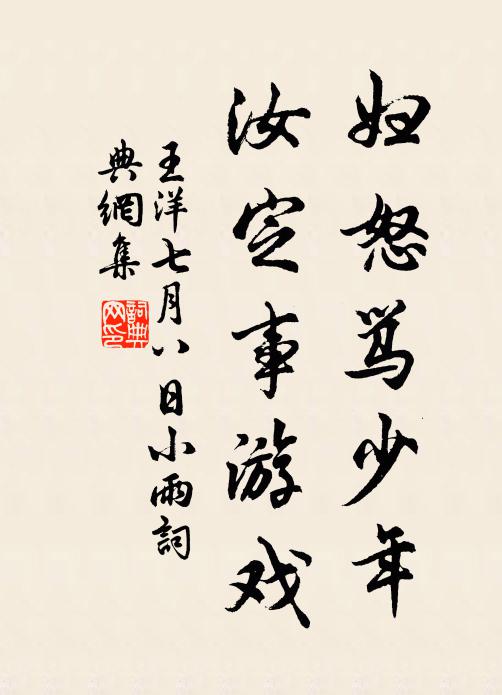 妇怒骂少年
汝定事游戏
王洋七月八日小雨詞
典網集
詞典
网印